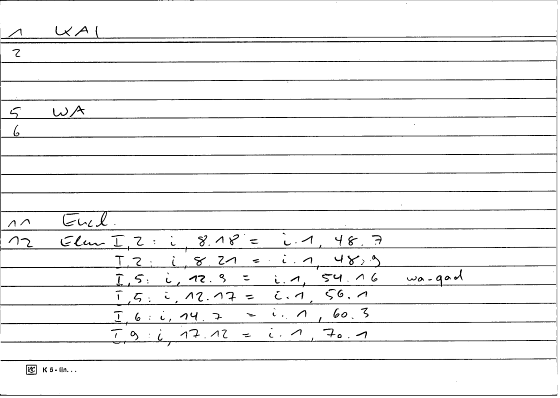 1 WA1
2
5 WA
6
11 Eucl.
12 Elem I,2: i, 8.18 = i.1, 48.7
I,2: i, 8.21 = i.1, 48,9
I,5: i, 12.9 = i.1, 54.16 wa-qad
I,5: i, 12.17 = i.1, 56.1
I,6: i, 14.7 = i.1, 60.3
I,9: i, 17.12 = i.1, 70.1
K 6 - lin. . .